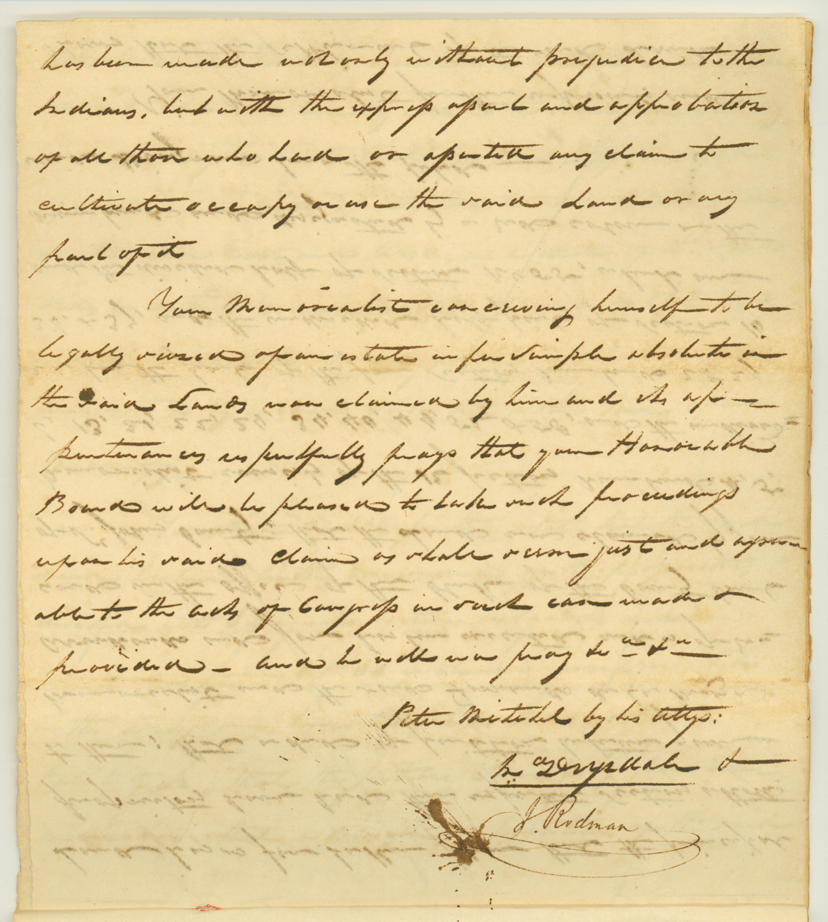 has been made not only without prejudice to the
Indians, but with the express assent and approbation
of all those who had or asserted any claim to
cultivate occupy or use the said Land or any
part of it
Your Memorialist conceiving himself to be
legally seized of an estate in fee Simple absolute in
the said Lands now claimed by him and its ap-
purtenances respectfully prays that your Honorable
Board will be pleased to take such proceedings
upon his said claim as shall seem just and agree-
able to the acts of Congress in such case made &
provided - and he will ever pray &c &c
Peter Mitchel by his Attys:
Drysdale &
J. Rodman